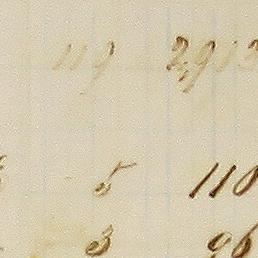 119 2,913
5 110
3 96